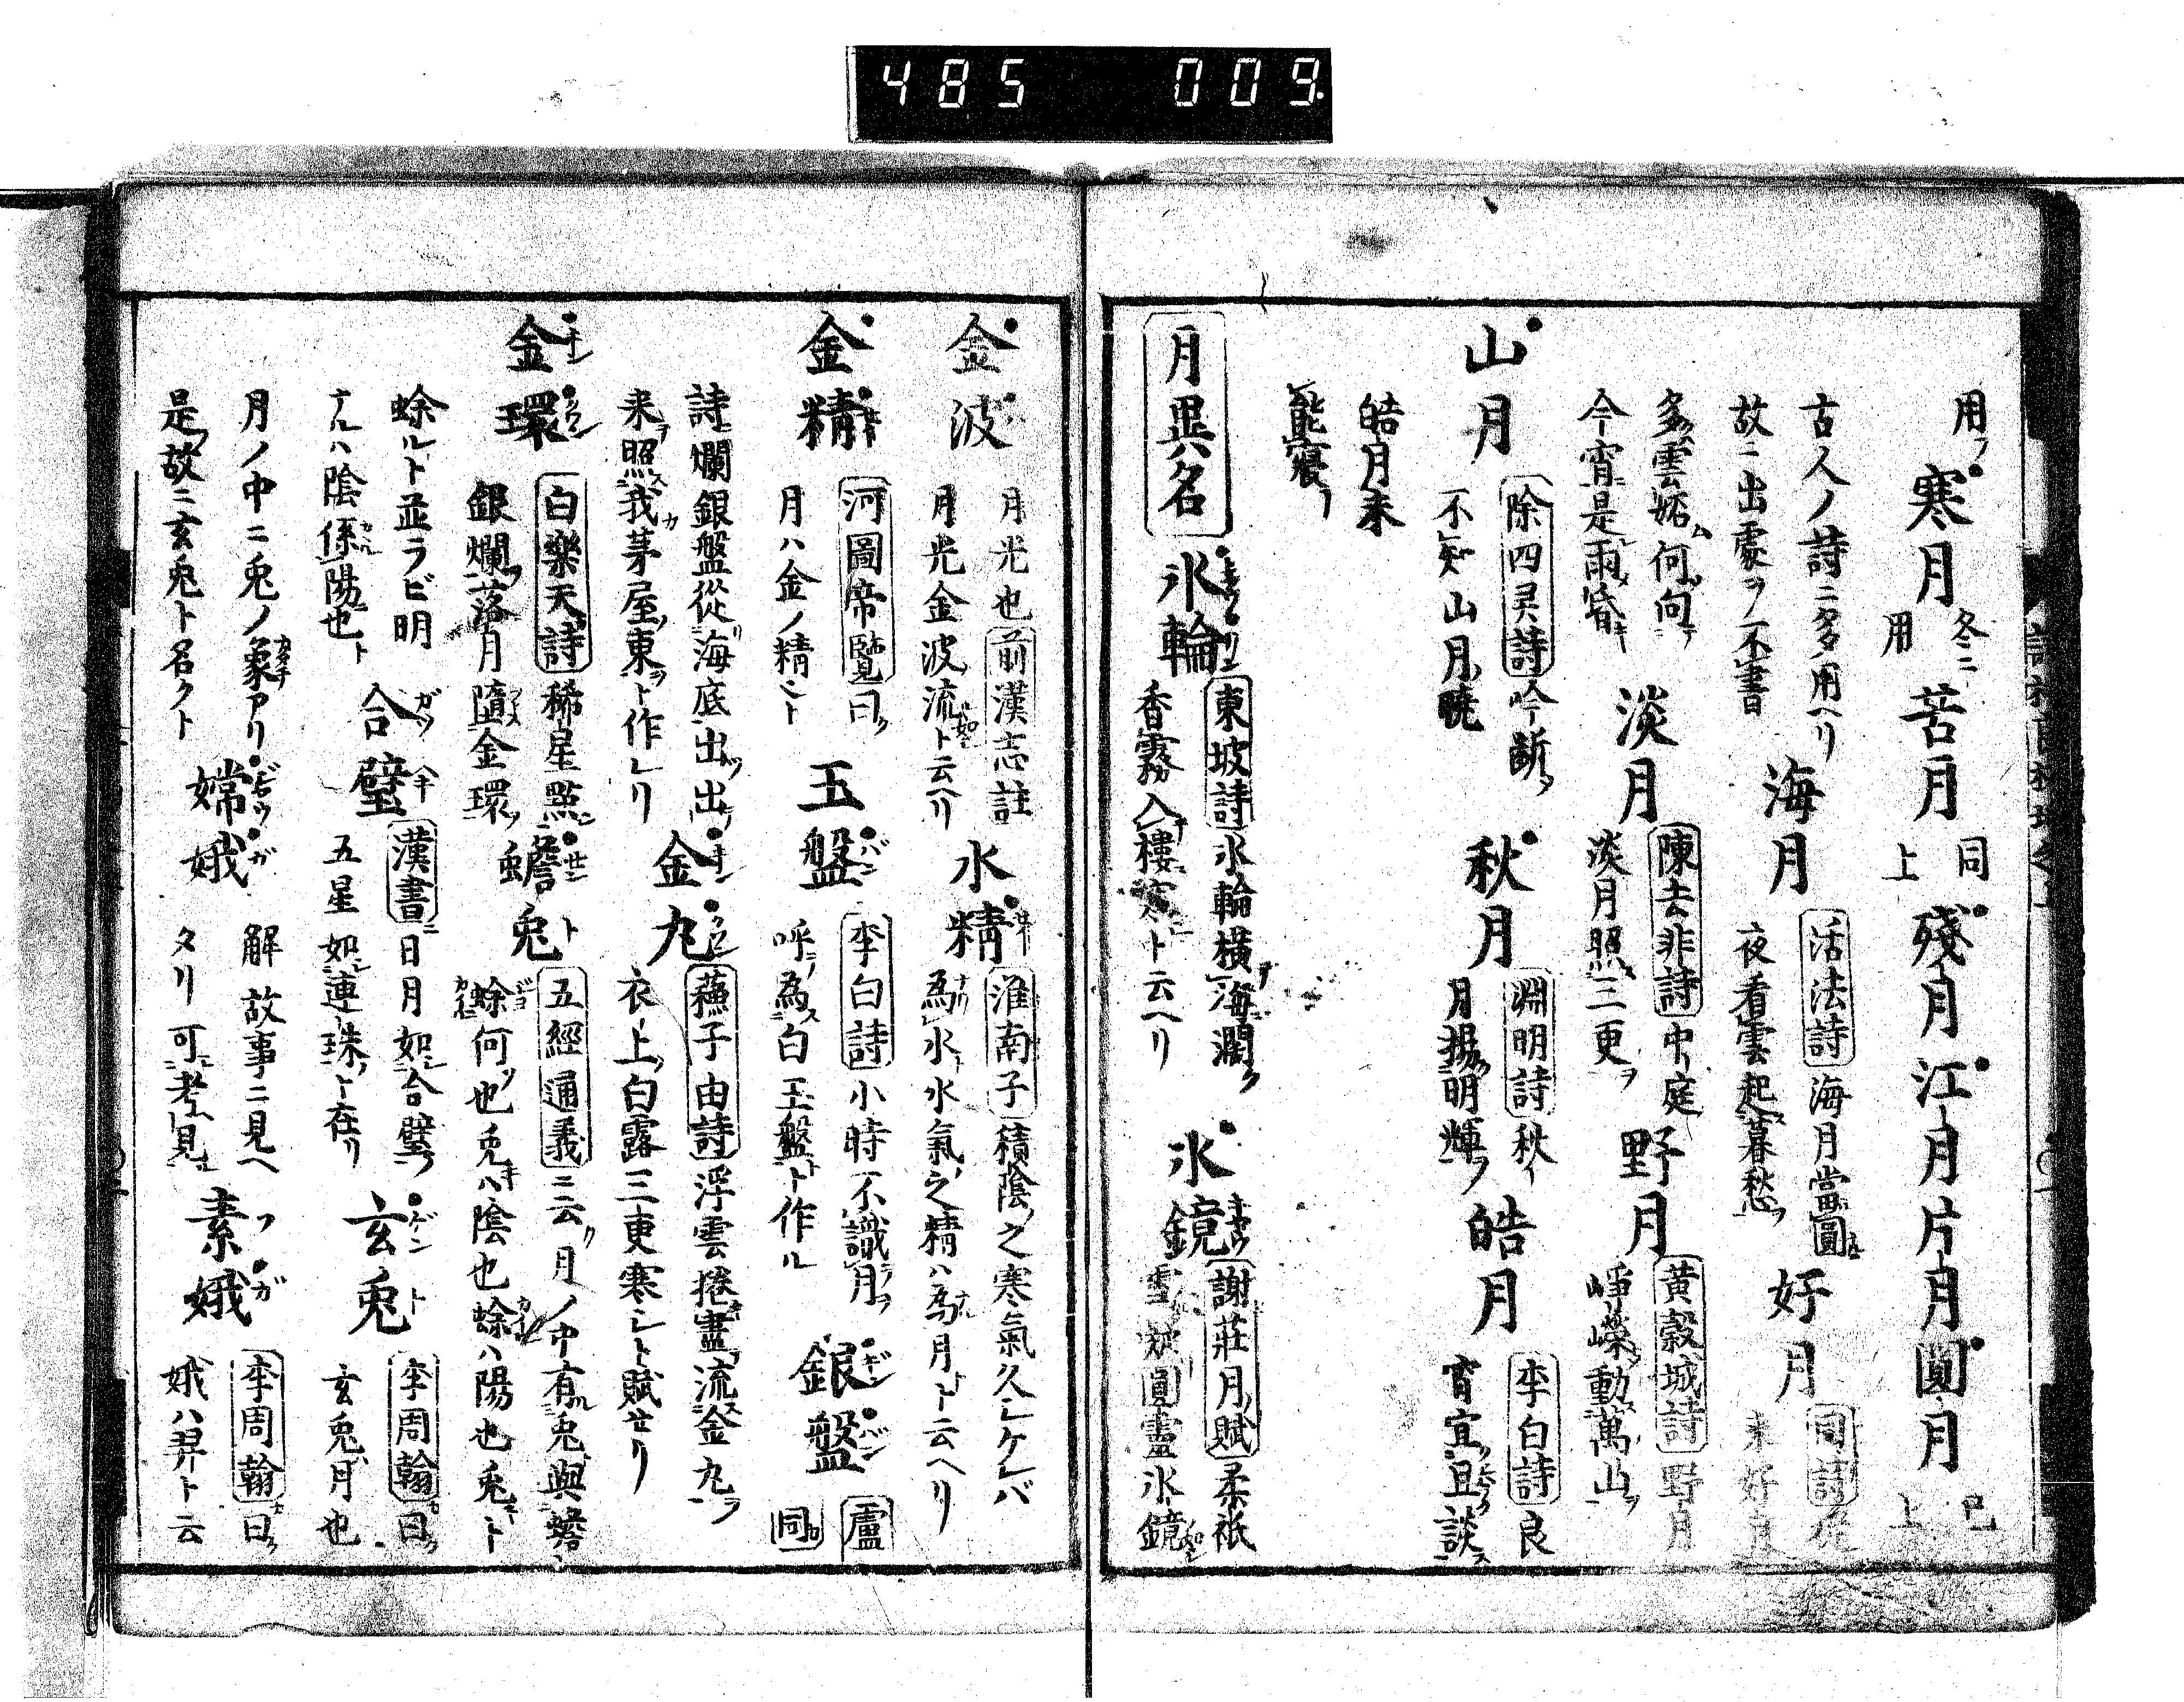 485 009
用フ寒月 冬ニ用 苦月 同上 殘月 江月 片月 圓月 已上
古人ノ詩ニ多用ヘリ
故ニ出處ヲ不書 海月 活法詩 海月當圓
夜看雲起暮愁 好月 同詩
来好月
多雲妬何向
今宵是雨昏 淡月 陳去非詩 中庭
淡月照三更 野月 黄穀城詩 野月
崢嶸動萬山
山月 除四灵詩 吟断
不知山月暁 秋月 淵明詩 秋
月揚明輝 皓月 李白詩 良
宵宜且談
皓月未
能寝
月異名 氷輪 東坡詩 氷輪横海濶
香霧入樓寒ト云ヘリ 氷鏡 謝莊月賦 柔祇
雪凝圓靈氷鏡
金波 月光也 前漢志註
月光金波流ト云ヘリ 水精 淮南子 積陰之寒氣久シケレバ
為水水氣之精ハ為月ト云ヘリ
金精 河圖帝覧曰
月ハ金ノ精ト 玉盤 李白詩 小時不識月
呼為白玉盤ト作ル 銀盤 盧同
詩爛銀盤從海底出出
来照我茅屋東ト作レリ 金丸 蘓子由詩 浮雲捲盡流金丸
衣上白露三更寒シト賦セリ
金環 白樂天詩 稀星點
銀爛落月墮金環 蟾兎 五經通義ニ云月ノ中有兎與蟾
蜍何也兎ハ陰也蜍ハ陽也兎ト
蜍ルト並ラビ明
ナルハ陰係陽也ト 合璧 漢書ニ日月如合璧
五星如連珠ト在リ 玄兎 李周翰曰
玄兎月也
月ノ中ニ兎ノ象アリ
是故ニ玄兎ト名クト 嫦娥 解故事ニ見ヘ
タリ可考見 素娥 李周翰曰
娥ハ羿ト云